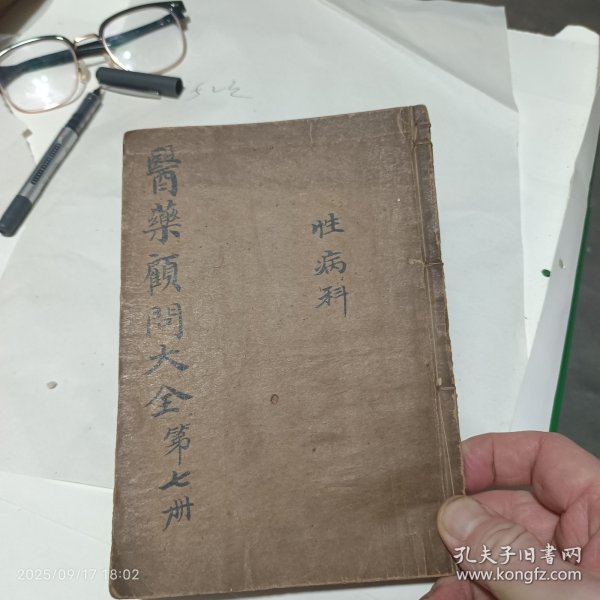 醫藥顧問大全第七册
性病科
2025/09/17 18:02
孔夫子旧书网
www.kongfz.com